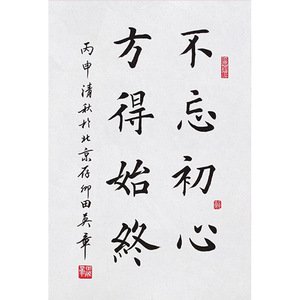 不忘初心
方得始終
丙申清秋於北京存卿田英章